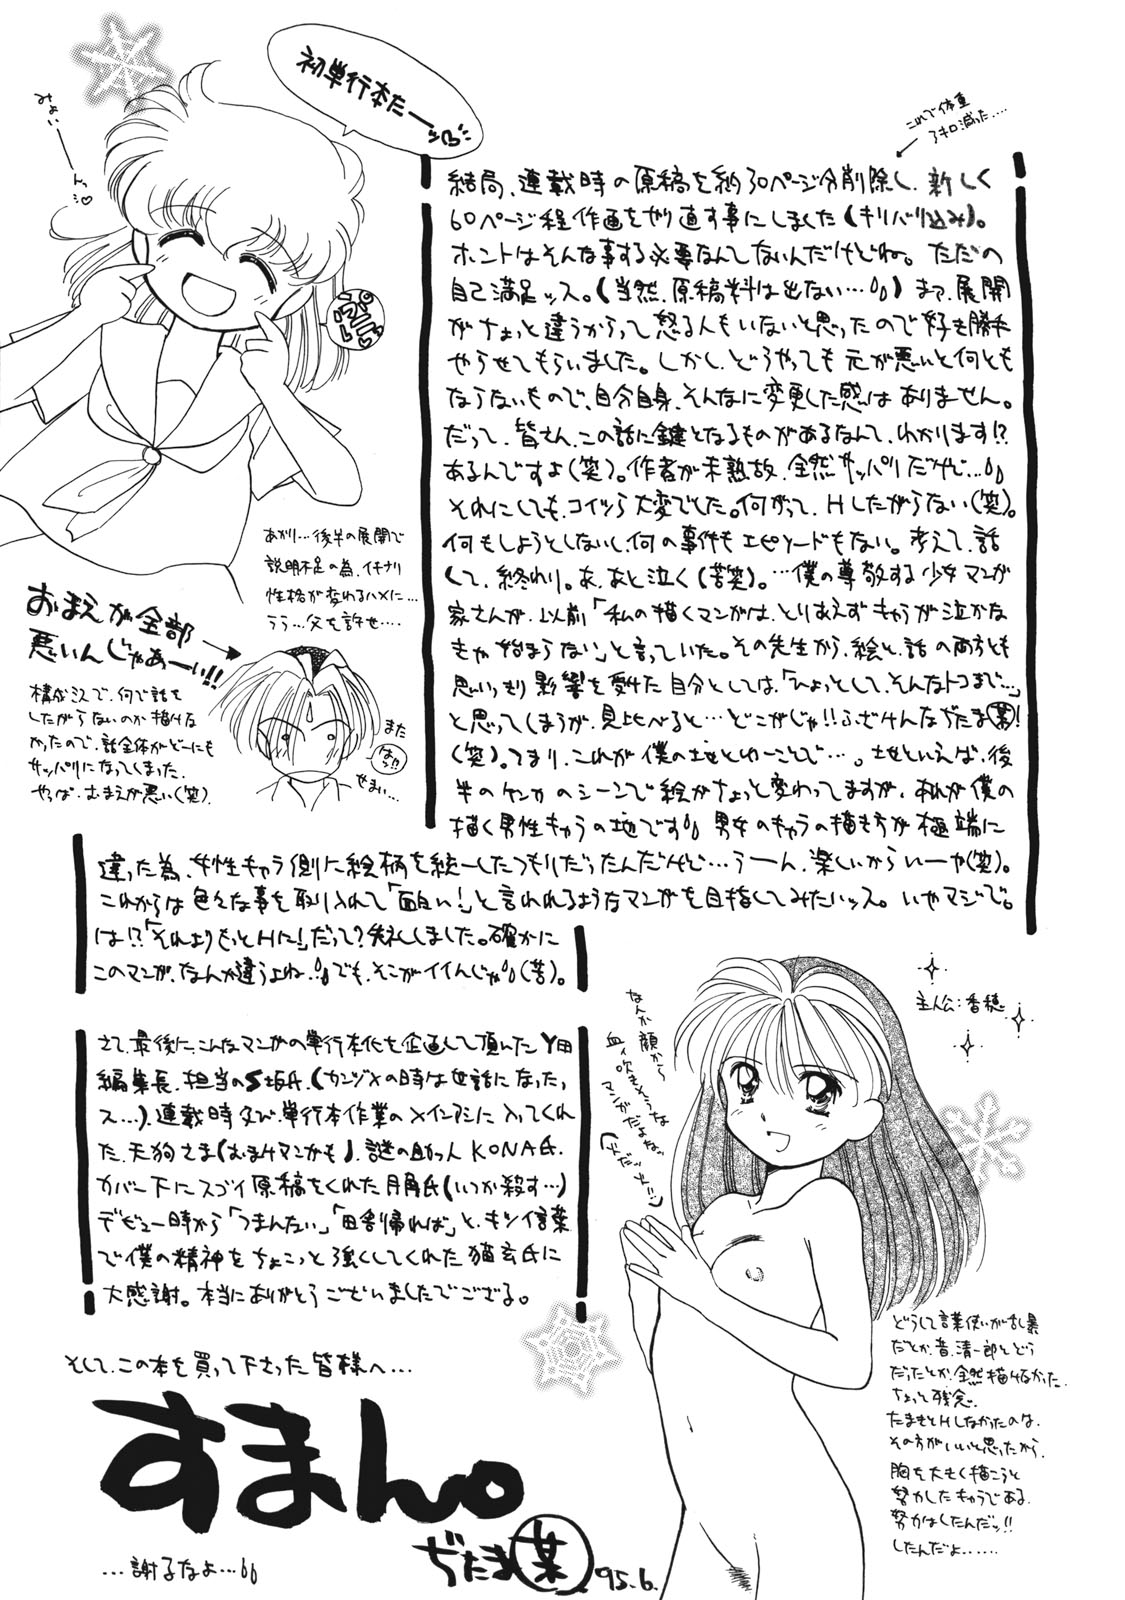 初単行本だー
みょいーーん
ぷにぷに
これで体重
7キロ減った‥‥
結局、連載時の原稿を約30ページ分削除し、新しく
60ページ程作画をやり直す事にしました(キリバリ込み)。
ホントはそんな事する必要なんてないんだけどね。ただの
自己満足ッス。(当然、原稿料は出ない…)まぁ、展開
がちょっと違うからって怒る人もいないと思ったので好き勝手
やらせてもらいました。しかし、どうやっても元が悪いと何とも
ならないもので、自分自身、そんなに変更した感はありません。
だって、皆さん、この話に鍵となるものがあるなんて、わかります!?
あるんですよ(笑)。作者が未熟故、全然サッパリだけど…
それにしても、コイツら大変でした。何がって、Hしたがらない(笑)。
何もしようとしないし、何の事件もエピソードもない。考えて、話
して、終わり。あ、あと泣く(苦笑)。…僕の尊敬する少女マンガ
家さんが、以前「私の描くマンガは、とりあえずキャラが泣かな
きゃ始まらない」と言っていた。その先生から、絵と、話の両方とも
思いっきり影響を受けた自分としては、「ひょっとして、そんなトコまで…」
と思ってしまうが、見比べると…どこがじゃ!!ふざけんなぢたま某!
(笑)。つまり、これが僕の地とゆーことで…。地といえば、後
半のケンカのシーンで絵がちょっと変わってますが、あれが僕の
描く男性キャラの地です。男女のキャラの描き方が極端に
違った為、女性キャラ側に絵柄を統一したつもりだったんだけど…うーん、楽しいからいーや(笑)。
これからは色々な事を取り入れて「面白い!」と言われるようなマンガを目指してみたいッス。いやマジで。
は!?「それよりもっとHに!」だって?失礼しました。確かに
このマンガ、なんか違うよね…でも、そこがイイんじゃ(苦)。
あがり…後半の展開で
説明不足の為、イキナリ
性格が変わるハメに…
うう…父を許せ‥‥
おまえが全部
悪いんじゃあーい!!
構成ミスで、何で話を
したがらないのか描けな
かったので、話全体がどーにも
サッパリになってしまった。
やっぱ、おまえが悪い(笑).
また
はっ!!
せまい…
さて、最後に、こんなマンガの単行本化を企画して頂いたY田
編集長、担当のS垣氏、(カンヅメの時は世話になったっ
ス…)、連載時及び、単行本作業のメインアシに入ってくれ
た、天狗さま(おまけマンガも)、謎の助っ人KONA氏、
カバー下にスゴイ原稿をくれた月角氏(いつか殺す…)
デビュー時から「つまんない」、「田舎帰れば」と、キツイ言葉
で僕の精神をちょこっと強くしてくれた猫玄氏に
大感謝。本当にありがとうございましたでござる。
主人公:香穂
なんか顔から
血ィ吹きそうな
マンガだよな。
どうして言葉使いが乱暴
だとか、昔、清一郎とどう
だったとか、全然描けなかった。
ちょって残念。
たまきとHしなかったのは、
その方がいいと思ったから。
胸を大きく描こうと
努力したキャラである。
努力はしたんだッ!!
したんだよ……
そして、この本を買って下さった皆様へ…
すまん。
ぢたま某
'95.6.
…謝るなよ…